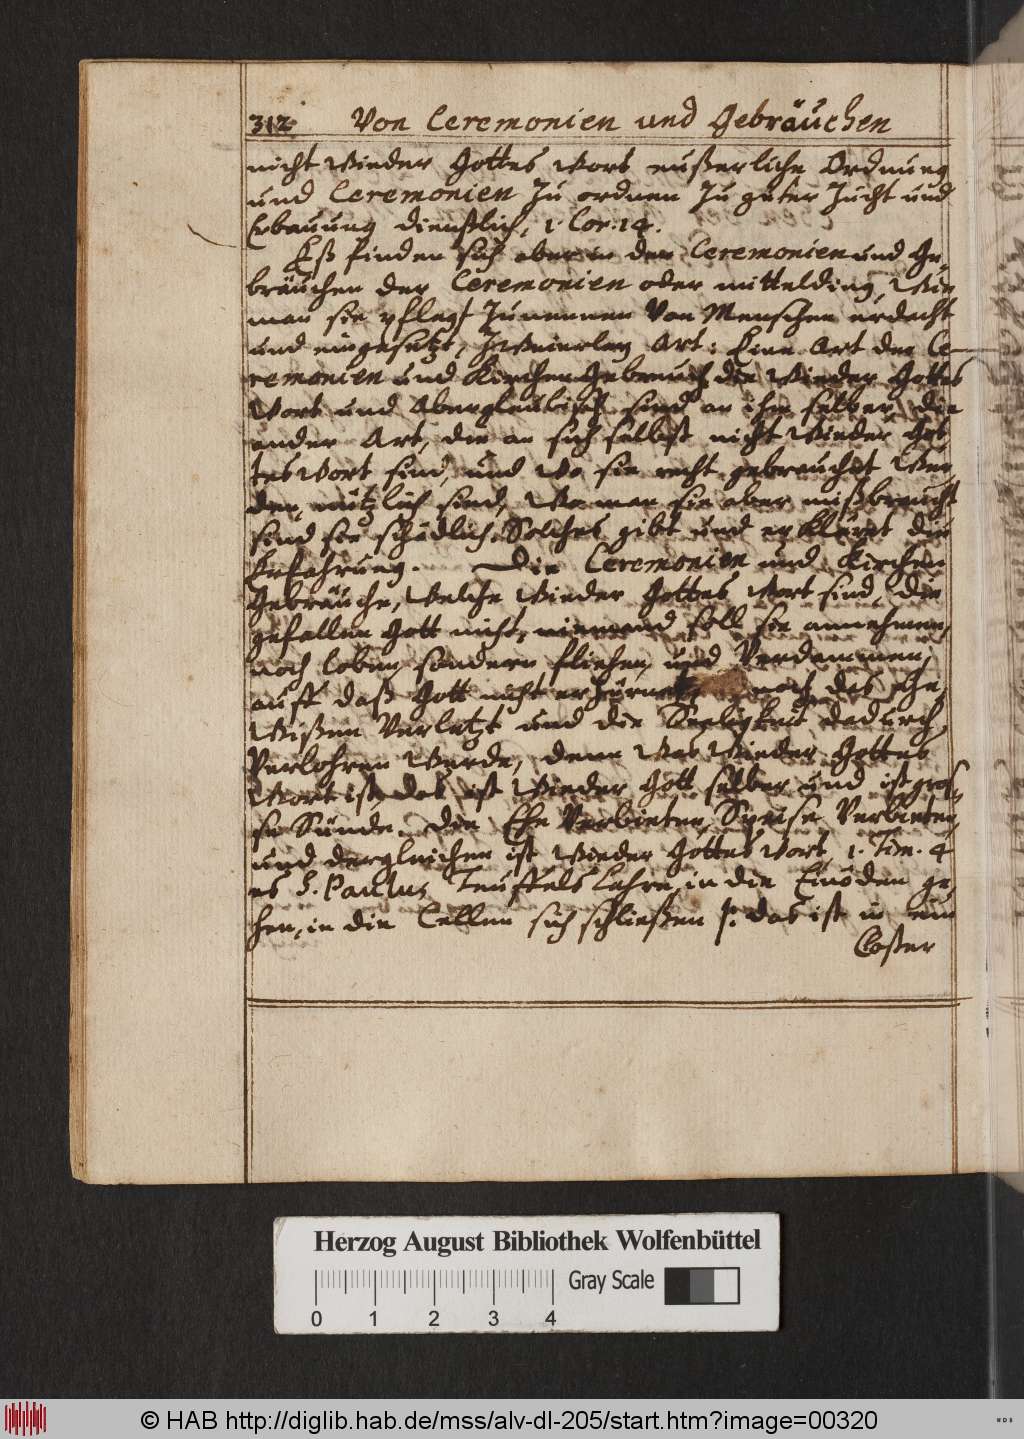 312. Von Ceremonien und Gebräuchen
nicht Wieder Gottes Wort eußerliche Ordnung
und Ceremonien Zu ordnen Zu guter Zucht und
Erbauung dienstlich, 1. Cor. 14.
Eß finden sich aber in den Ceremonien und Ge-
bräuchen der Ceremonien oder mittelding, Wie
man sie pflegt Zunennen Von Menschen erdacht
und eingesetzt, Zweierley Art: Eine Art der Ce-
remonien und Kirchen Gebreuch die Wieder Gottes
Wort und Abergleubisch sind an ihn selber, die
ander Art, die an sich selbst nicht Wieder Got-
tes Wort sind, und Wo sie recht gebrauchet Wer-
den, nützlich sind, Wo man sie aber mißbraucht
sind sie schädlich, Solches gibt und erkläret die
Erfahrung. Die Ceremonien und Kirchen
Gebräuche, Welche Wieder Gottes Wort sind, die
gefallen Gott nicht, niemand soll sie annehmen,
noch loben, sondern fliehen, und Verdammen,
auff daß Gott nicht erzürnet, noch das Ge-
Wißen Verletzt und die Seeligkeit dadurch
Verlohren Werde, denn Was Wieder Gottes
Wort ist, das ist Wieder Gott selber und ist gros-
se Sünde. Die Ehe Verbieten, Speise Verbieten,
und dergleichen ist Wieder Gottes Wort, 1. Tim. 4
es S. Paulus Teuffels Lehre, in die Einöden ge-
hen, in die Cellen sich schließen /: das ist in ein
Closter
Herzog August Bibliothek Wolfenbüttel
Gray Scale
0 1 2 3 4
© HAB http://diglib.hab.de/mss/alv-dl-205/start.htm?image=00320
WDB